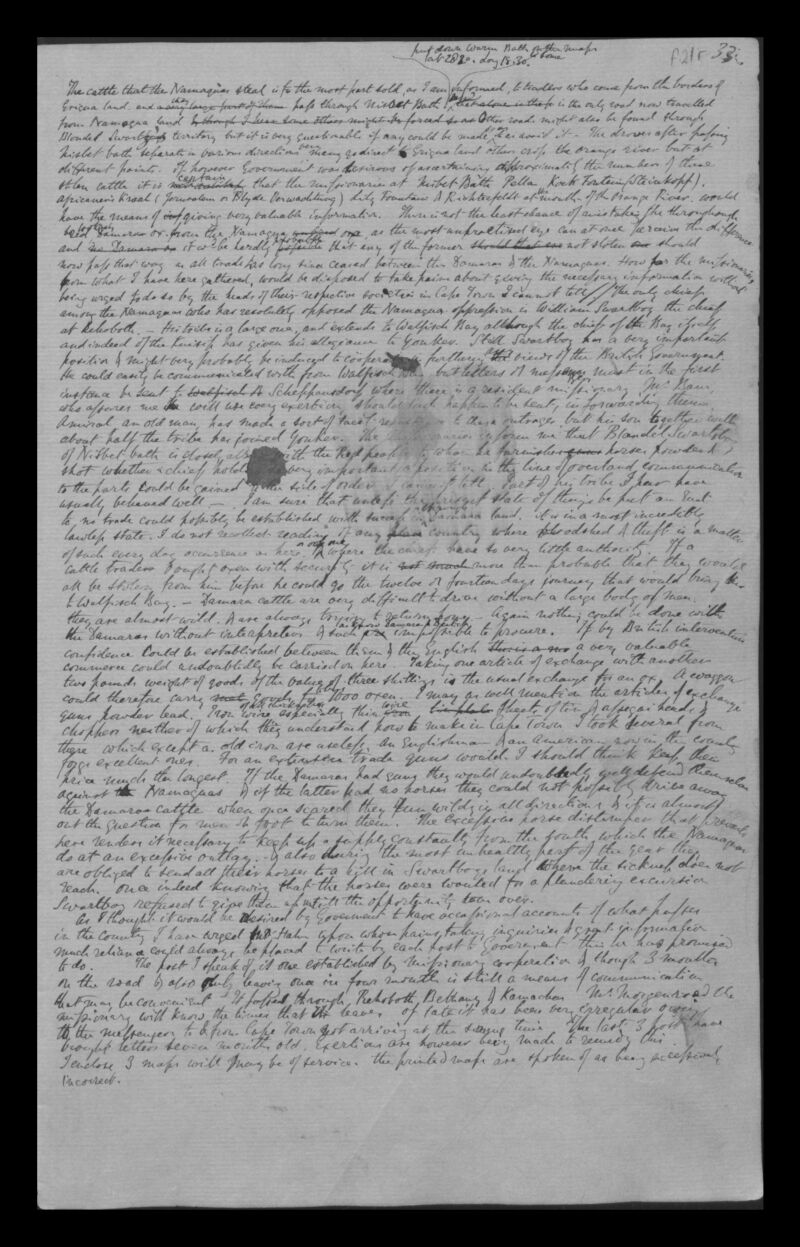 put down Warm Bath on the maps
lat 28 20. long 18.30.
f21r 33
The cattle that the Namaquas steal is for the most part sold, as I am informed, to traders who come from the borders of
Griqua land. and pass through Nisbet Bath, is the only road now travelled
from Namaqua land Other roads might also be found through
Blondel Swartboy's territory but it is very questionable if any could be made as avoid it - The droves after passing
Nisbet bath separate in various directions many go direct to Griqua land others cross the Orange river but at
different points. If however Government was desirous of ascertaining approximately the numbers of these
stolen cattle it is certain that the missionaries at Nisbet Bath Pella Kock Fontein (Steinkopf).
Africaner's Kraal (Jerusalem or Blyde Verwachting) Lily Fountain & Richtersfeldt at the mouth of the Orange River. would
have the means of giving very valuable information. There is not the least chance of mistaking the throughout
Damara ox from the Namaqua as the most unpractised eye can at once perceive the difference
and it is hardly probable that any of the former not stolen should
now pass that way as all trade has long since ceased between the Damaras & the Namaquas. How far the missionaries
from what I have here gathered, would be disposed to take pains about giving the necessary information without
being urged to do so by the heads of their respective societies in Cape Town I cannot tell // The only chief
among the Namaquas who has resolutely opposed the Namaqua oppression is William Swartboy the chief
at Rehoboth. - His tribe is a large one, and extends to Walfisch Bay although the chief of the Bay itself
and indeed of the Kuisip has given his allegiance to Yonker. Still Swartboy has a very important
position & might very probably be induced to cooperate in furthering the views of the British Government.
He could easily be communicated with from Walfisch Bay but letters or messages must in the first
instance be sent to Scheppmansdorf where there is a resident missionary Mr. Bam,
who assures me he will use every exertion should such happen to be sent, in forwarding them.
Amiral an old man, has made a sort of tacit to these outrages but his son together with
about half the tribe has joined Yonker. The missionaries inform me that Blondel Swartboy
of Nisbet bath is closely allied with the Red people to whom he furnishes horses, powder &
shot whether a chief holding so very important a position in the line of overland communication
to the parts could be gained to the side of order I cannot tell. Part of his tribe I hear have
usually behaved well - . I am sure that unless the present state of things be put an End
to, no trade could possibly be established with success in Damara land. it is in a most incredibly
lawless state. I do not recollect reading of any country where bloodshed & theft is a matter
of such every day occurrence as here. or where the chiefs have so very little authority. If a
cattle trader bought oxen with security it is more than probable that they would
all be stolen from him before he could go the twelve or fourteen days journey that would bring him
to Walfisch Bay. - Damara cattle are very difficult to drive without a large body of men.
they are almost wild. & are always trying to return home. Again nothing could be done with
the Damaras without interpreters & such impossible to procure. If by British intervention
confidence could be established between them & the English a very valuable
commerce could undoubtedly be carried on here. Taking one article of exchange with another
two pounds weight of goods of the value of three shillings is the usual exchange for an ox. A waggon
could therefore carry goods for 1600 oxen. I may as well mention the articles of exchange
guns powder lead. Iron wire of all thicknesses especially thin wire sheets of tin & assegai heads &
choppers neither of which they understand how to make in Cape Town. I took several from
there which except as old iron are useless. An Englishman & an American now in the country
forge excellent ones. For an extensive trade guns would I should think keep their
price much the longest. If the Damaras had guns they would undoubtedly well defend themselves
against the Namaquas & if the latter had no horses they could not possibly drive away
the Damaras cattle when once scared they run wildly in all directions & it is almost
out the question for men on foot to turn them. The excessive horse distemper that prevails
here renders it necessary to keep up a supply constantly from the south which the Namaquas
do at an excessive outlay. & also during the most unhealthy part of the year they
are obliged to send all their horses to a hill in Swartboy's land where the sickness does not
reach. Once indeed knowing that the horses were wanted for a plundering excursion
Swartboy refused to give them up until the opportunity was over.
As I thought it would be desired by Government to have occasional accounts of what passes
in the country I have urged Mr Hahn upon whose painstaking inquiries & great information
much reliance could always be placed to write by each post to Government this he has promised
to do. The post I speak of is one established by missionary cooperation & though 3 months
on the road & also only leaving once in four months is still a means of communication
that may be convenient It passes through Rehoboth, Bethany & Kamachas Mr. Morgenrood the
missionary will know the times that it leaves of late it has been very irregular owing
to the messengers to & from Cape Town not arriving at the same time. The last 3 posts have
brought letters seven months old, exertions are however being made to remedy this.
I enclose 3 maps which may be of service. the printed maps are spoken of as being excessively
incorrect.